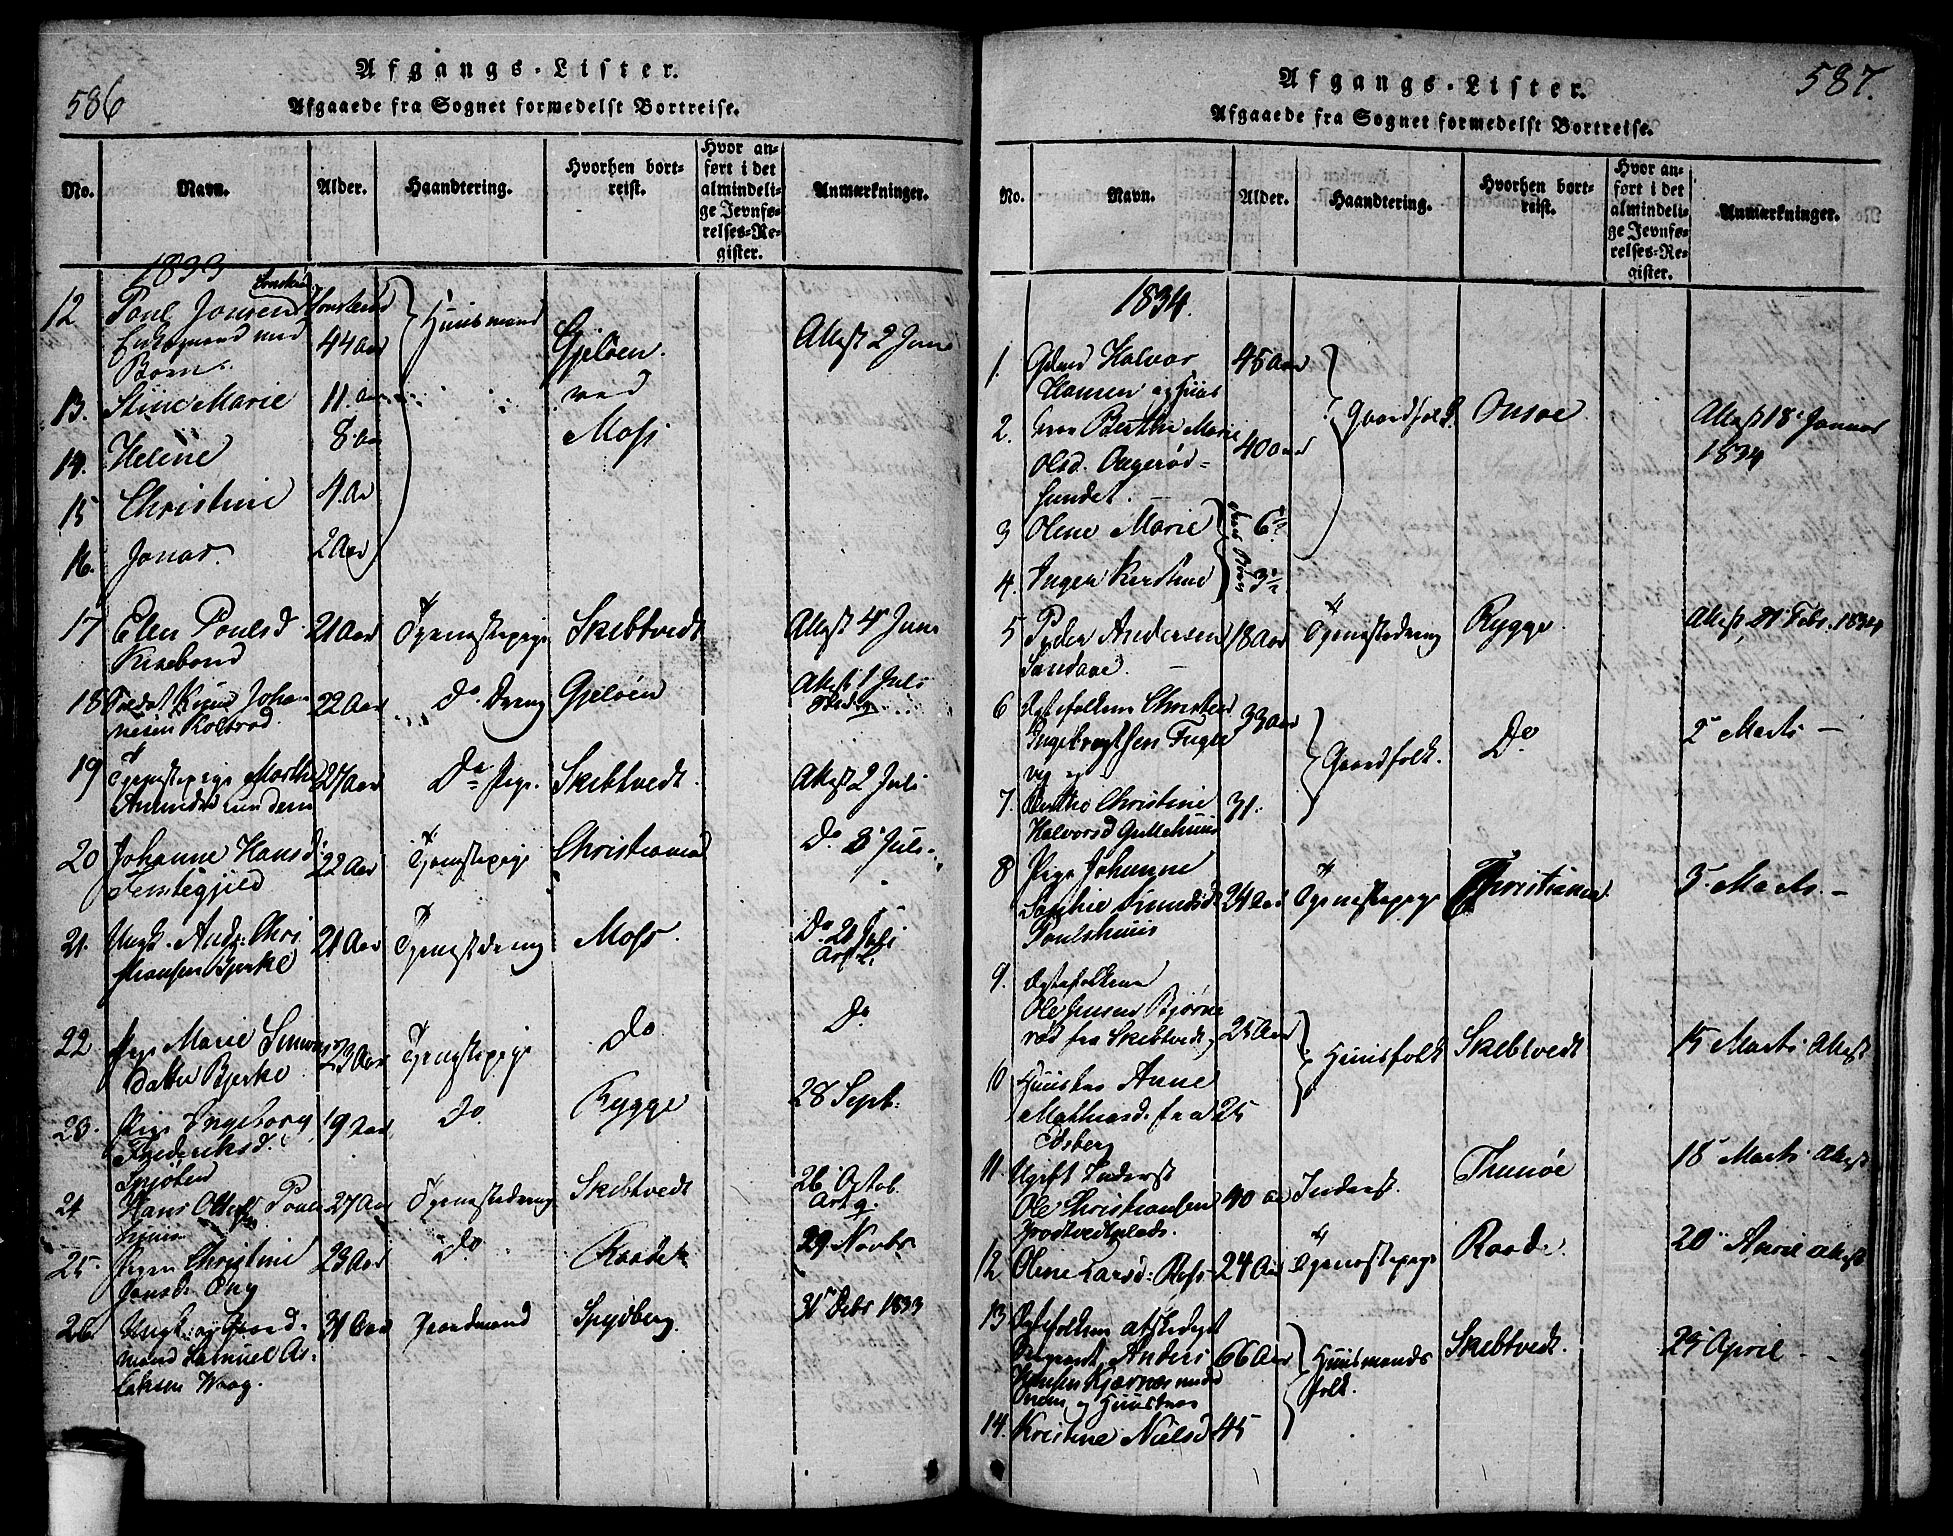 586
Afgangs-Lister.
Afgaaede fra Sognet formedelst Bortreise.
No. Navn. Alder. Haandtering. Hvorhen bortreist. Hvor anført i det almindelige Jevnførelses-Register. Anmærkninger.
1833
12 Poul Jonsen Huusmand Gjeløen Attest 2 Juni
Enkemand med 44 Aar
Børn. ved
13. Stine Marie 11. Aar
Moss
14. Helene 8. Aar
15 Christine 4. Aar
16. Jonas. 2 Aar
17 Elen Poulsd 21 Aar Tjenestepige Skebtvedt Attest 4 Juni
18 Soldat Knud Johan 22 Aar Do Dreng Gjeløen Attest 1 Juli
nesen Kolsrød
19 Tjenestepige Marthe 27 Aar Do Pige. Skebtvedt. Attest 2 Juli
20 Johanne Hansd. 22 Aar Tjenestepige Christiania Do. 3 Juli
21. Ungk. Andr. Chri 21 Aar Tjenestedreng Moss. Do. 21 Juli
stiansen Bjerke
22 Pige Marie Simons 23 Aar Tjenestepige Do Do.
datter Bjerke
23. Pige Ingeborg 19 Aar Do. Rygge 28 Sept.
Frederiksd.
Spjøten
24 Hans 27 Aar Tjenestedreng Skebtvedt 26 Octob.
25 Pigen Christine 23 Aar Do Raade 29 Novbr
Jansd.
26. Ungk. og Gaard- 31 Aar Gaardmand Spydberg. 31 Decbr 1833
mand Samuel As-
laksen Waag.
587.
Afgangs-Lister.
Afgaaede fra Sognet formedelst Bortreise.
No. Navn. Alder. Haandtering. Hvorhen bortreist. Hvor anført i det almindelige Jevnførelses-Register. Anmærkninger.
1834.
1. Halvor 45 Aar
Hansen og Huus
2. troe Berthe Marie 40 Aar Gaardfolk. Onsøe Attest 18 Januar
Olsd. 1834
sundet.
3 Olene Marie 6
4. Inger Kirstine 3½
5 Peder Andersen 18 Aar Tjenestedreng Rygge. Attest 21 Febr. 1834
Sandaae.
6 Egtefolkene Christen 33 Aar
Ingebregtsen Fugle Gaardfolk. Do 2 Marts –
vig og
7. Berthe Christine 31.
Halvorsd Gullehuus
8 Pige Johanne
Sophie Knudsd 24 Aar Tjenestepige Christiania. 3 Marts. –
Poulshuus
9. Egtefolkene
Ole Jensen Bjørne
rød fra Skebtvedt, 25 Aar Huusfolk Skebtvedt 15 Marts Attest
10 Huustroe Anne
Mathiasd. fra 25
Edsberg
11. Ugift Inderst Thunøe 18 Marts Attest
Ole Christiansen 40 Aar Inderst.
12 Oline Larsd. 24 Aar Tjenestepige Raade. 20 April Attest
13 Egtefolkene afskediget Skebtvedt. 25 April –
Sergeant Anders 66 Aar Huusmands
Hansen Kjærnæs med folk.
Huustroe
14. Kristine Nielsd 45